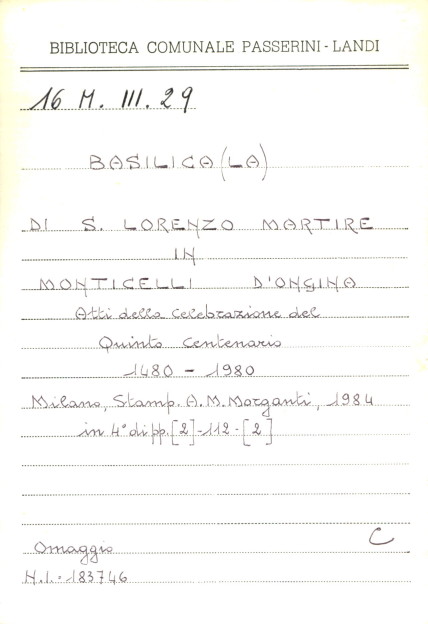 BIBLIOTECA COMUNALE PASSERINI - LANDI
16 M. III. 29
BASILICA (LA)
DI S. LORENZO MARTIRE
IN
MONTICELLI D'ONGINA
Atti della celebrazione del
Quinto centenario
1480 - 1980
Milano, Stamp. A. M. Morganti, 1984
in 4° di pp. [2]-112-[2]
C
Omaggio
N.I. 183746